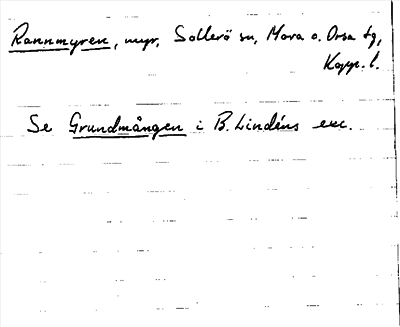 Rannmyren, myr, Sollerö sn, Mora o. Orsa tg,
Kopp. l.
Se Grundmången i B. Lindéns exc.